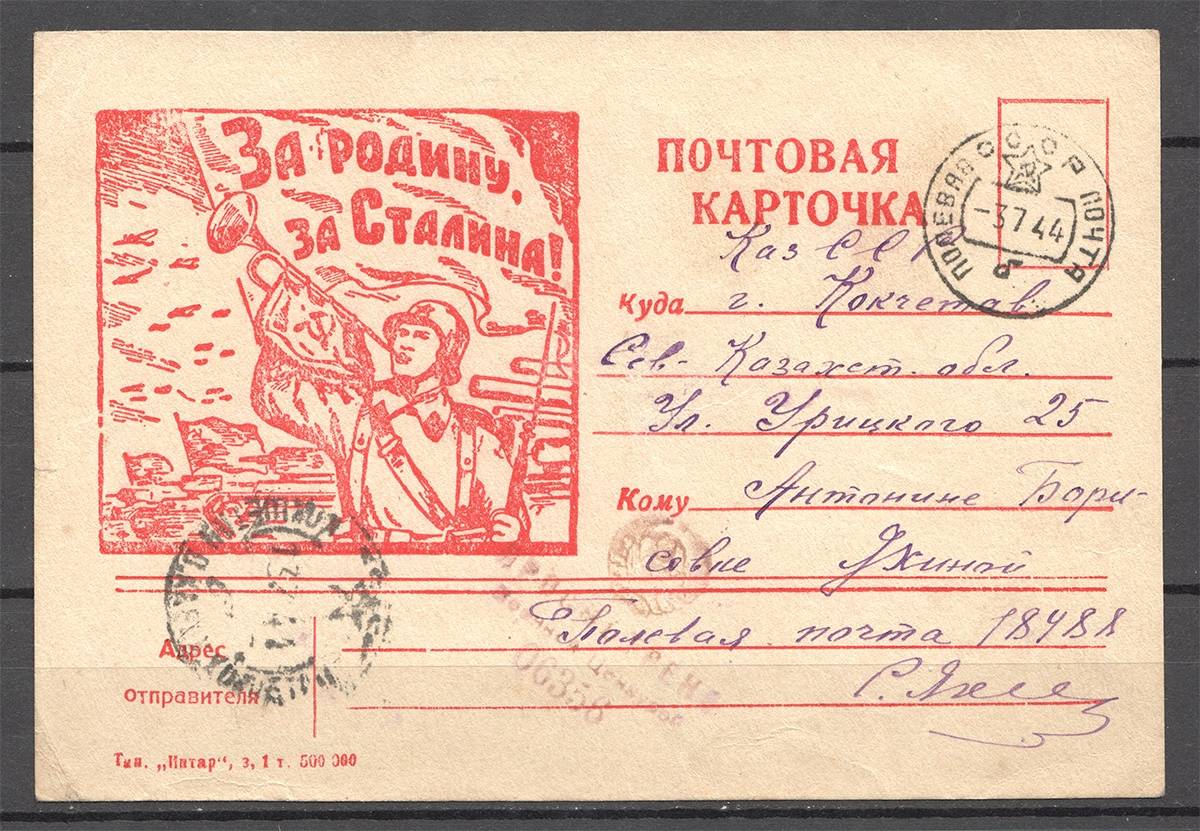 За родину,
за Сталина!
ПОЧТОВАЯ
КАРТОЧКА
СССР
ПОЛЕВАЯ ПОЧТА
-3 7 44
Каз ССР
Куда г. Кокчетав
Сев- Казахст. обл.
Ул. Урицкого 25
Кому Антонине Бори-
совне Яхиной
Полевая почта 18488
Адрес
отправителя
С.
06358
Тип. „Интар“, з, 1 т. 500 000